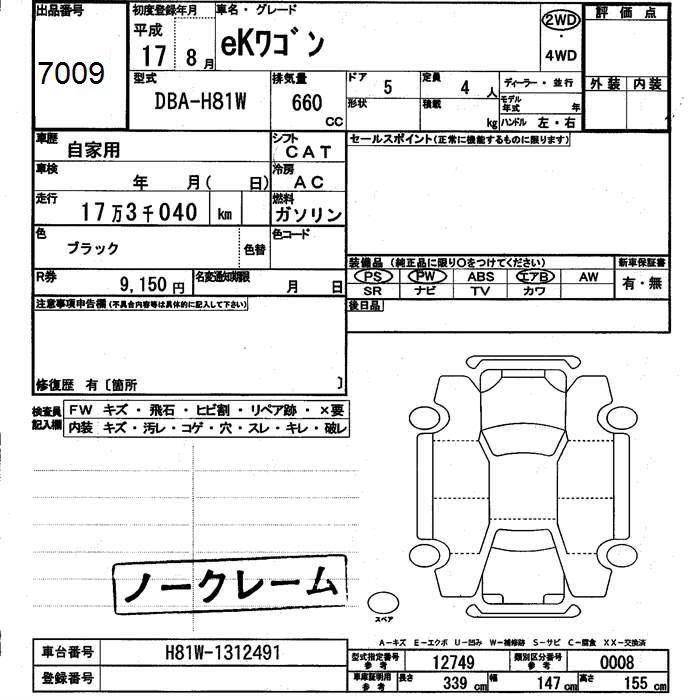 出品番号
7009
初度登録年月
平成
17 8月
車名・グレード
eKワゴン
2WD
・
4WD
評価点
外装 内装
型式
DBA-H81W
排気量
660
CC
ドア 5
定員 4 人
形状
積載 kg
ディーラー・並行
モデル年式 年
ハンドル 左・右
車歴 自家用
シフト CAT
車検 年 月( 日)
冷房 AC
走行 17万3千040 km
燃料 ガソリン
色 ブラック
色替
色コード
R券 9,150円
名変通知期限 月 日
セールスポイント(正常に機能するものに限ります)
装備品 (純正品に限り○をつけてください)
新車保証書
PS PW ABS エアB AW
SR ナビ TV カワ
有・無
後日品
注意事項申告欄(不具合内容等は具体的に記入して下さい)
修復歴 有〔箇所 〕
検査員記入欄
FW キズ・飛石・ヒビ割・リペア跡・×要
内装 キズ・汚レ・コゲ・穴・スレ・キレ・破レ
ノークレーム
スペア
A-キズ E-エクボ U-凹み W-補修跡 S-サビ C-腐食 XX-交換済
車台番号 H81W-1312491
登録番号
型式指定番号 参考 12749
類別区分番号 参考 0008
車庫証明用 参考
長さ 339cm
幅 147cm
高さ 155cm